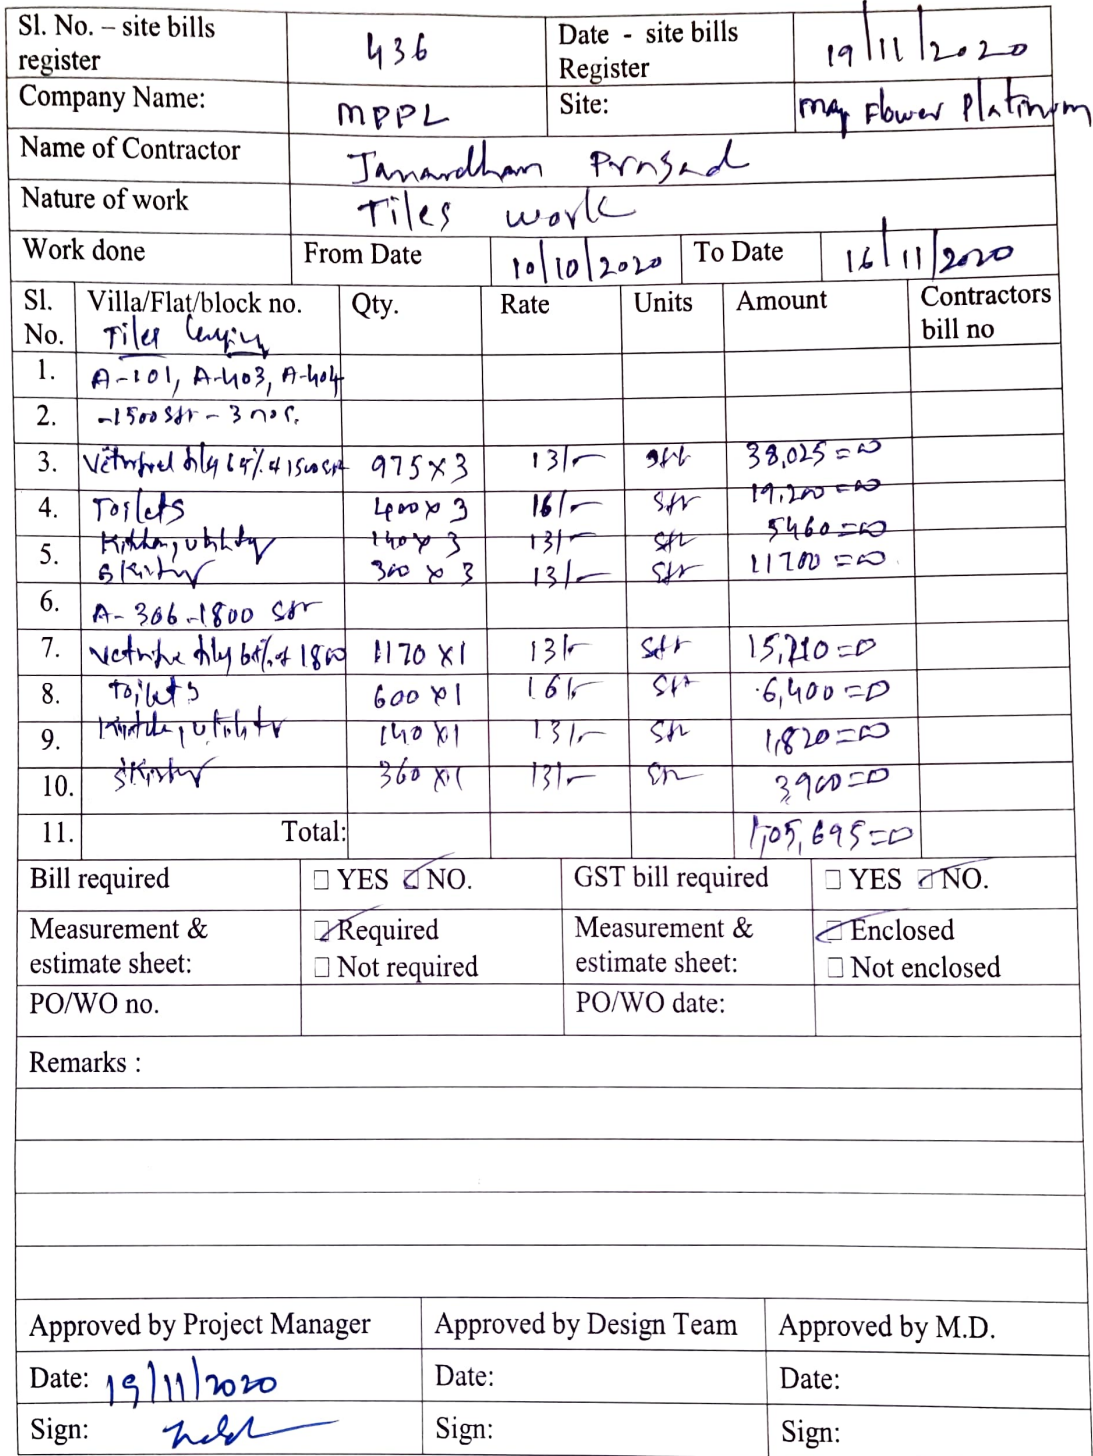 Sl. No. – site bills register 436 Date - site bills Register 19/11/2020
Company Name: MPPL Site: May Flower Platinum
Name of Contractor Janardhan Prasad
Nature of work Tiles work
Work done From Date 10/10/2020 To Date 16/11/2020
Sl. No. Villa/Flat/block no. Qty. Rate Units Amount Contractors bill no
Tiles
1. A-101, A-403, A-404
2. -1500 Sft - 3 nos.
3. 65% of 1500 Sft 975 x 3 13/- sft 38,025=00
4. Toilets 400 x 3 16/- Sft 19,200=00
5. Kitchen, utility 140 x 3 13/- Sft 5460=00
Skirting 300 x 3 13/- Sft 11700=00
6. A-306-1800 Sft
7. 65% of 1800 1170 x 1 13/- Sft 15,210=0
8. Toilets 600 x 1 16/- Sft 6,400=0
9. Kitchen, utility 140 x 1 13/- Sft 1,820=00
10. Skirting 360 x 1 13/- Sft 3,900=0
11. Total: 1,05,695=0
Bill required □ YES ☑ NO. GST bill required □ YES ☑ NO.
Measurement & estimate sheet: ☑ Required Measurement & estimate sheet: ☑ Enclosed
□ Not required □ Not enclosed
PO/WO no. PO/WO date:
Remarks :
Approved by Project Manager Approved by Design Team Approved by M.D.
Date: 19/11/2020 Date: Date:
Sign: Sign: Sign: